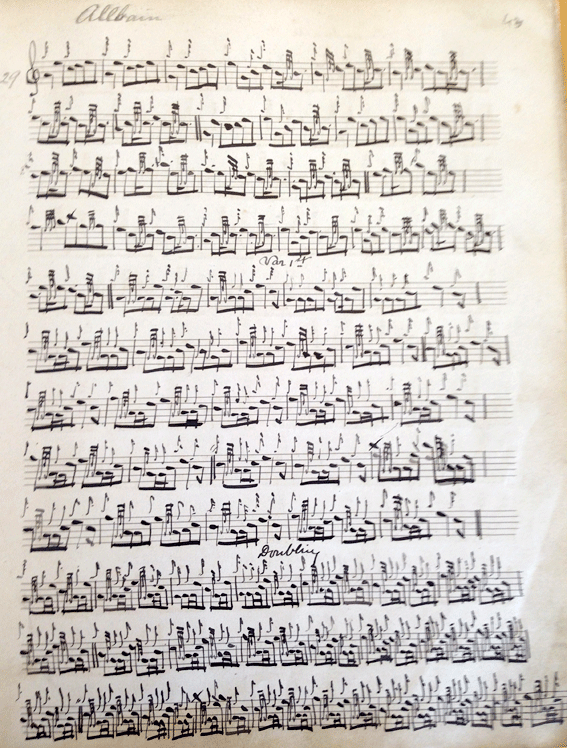 Allbain
29
Var 1st
Doubling